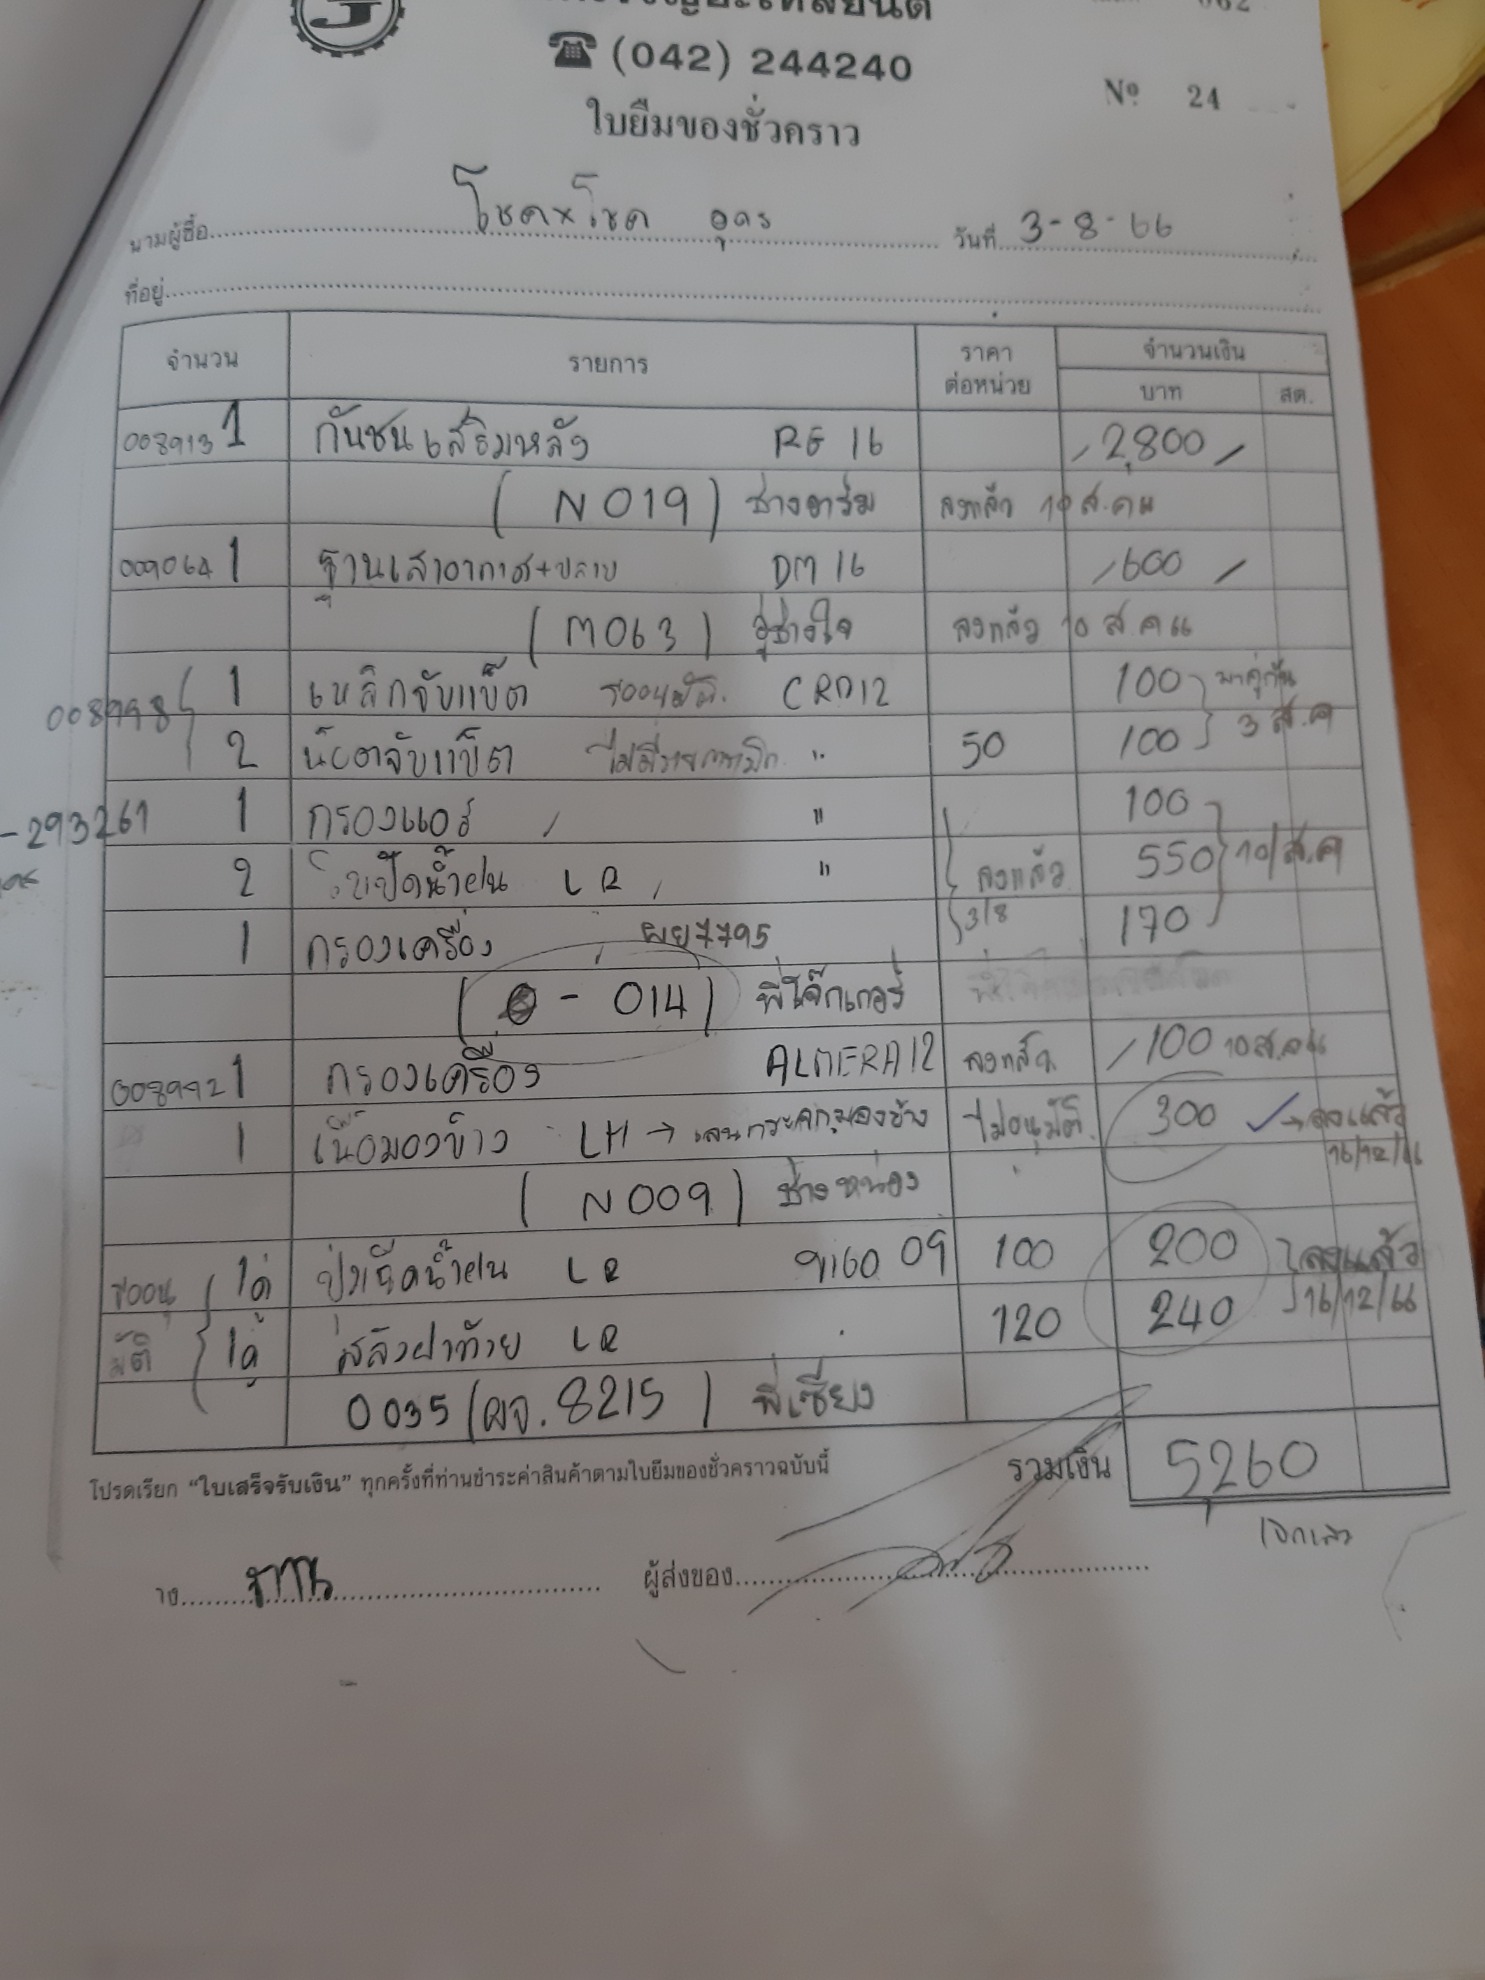 (042) 244240
Nº 24
ใบยืมของชั่วคราว
นามผู้ซื้อ โชค×โชค อุดร วันที่ 3-8-66
ที่อยู่
จำนวน รายการ ราคาต่อหน่วย จำนวนเงิน
บาท สต.
008913 1 กันชนเสริมหลัง RE 16 2,800
(N019) ช่างอาร์ม ลงแล้ว 10 ส.ค 66
009064 1 ฐานเสาอากาศ+ปลาย DM 16 600
(M063) อู่ช่างใจ ลงแล้ว 10 ส.ค 66
008998 1 เหล็กจับแบ็ต รออนุมัติ CRD12 100 มาคู่กัน
2 น๊อตจับแบ็ต ไม่มีรายการเบิก " 50 100 3 ส.ค
-293261 1 กรองแอร์ " 100
2 ใบปัดน้ำฝน LR " ลงแล้ว 550 10/ส.ค
1 กรองเครื่อง ผย7795 3/8 170
( - 014) พี่โจ๊กเกอร์
008992 1 กรองเครื่อง ALMERA12 ลงแล้ว 100 10 ส.ค 66
1 เนื้อมองข้าง LH → เลนกระจกมองข้าง ไม่อนุมัติ 300 → ลงแล้ว
16/12/66
(N009) ช่างหน่อง
รออนุ 1คู่ ปัดน้ำฝน LR 09 100 200 ลงแล้ว
มัติ 1คู่ สลิงฝาท้าย LR 120 240 16/12/66
0035 (ผจ.8215) พี่เซียง
โปรดเรียก “ใบเสร็จรับเงิน” ทุกครั้งที่ท่านชำระค่าสินค้าตามใบยืมของชั่วคราวฉบับนี้ รวมเงิน 5,260
ผู้ส่งของ